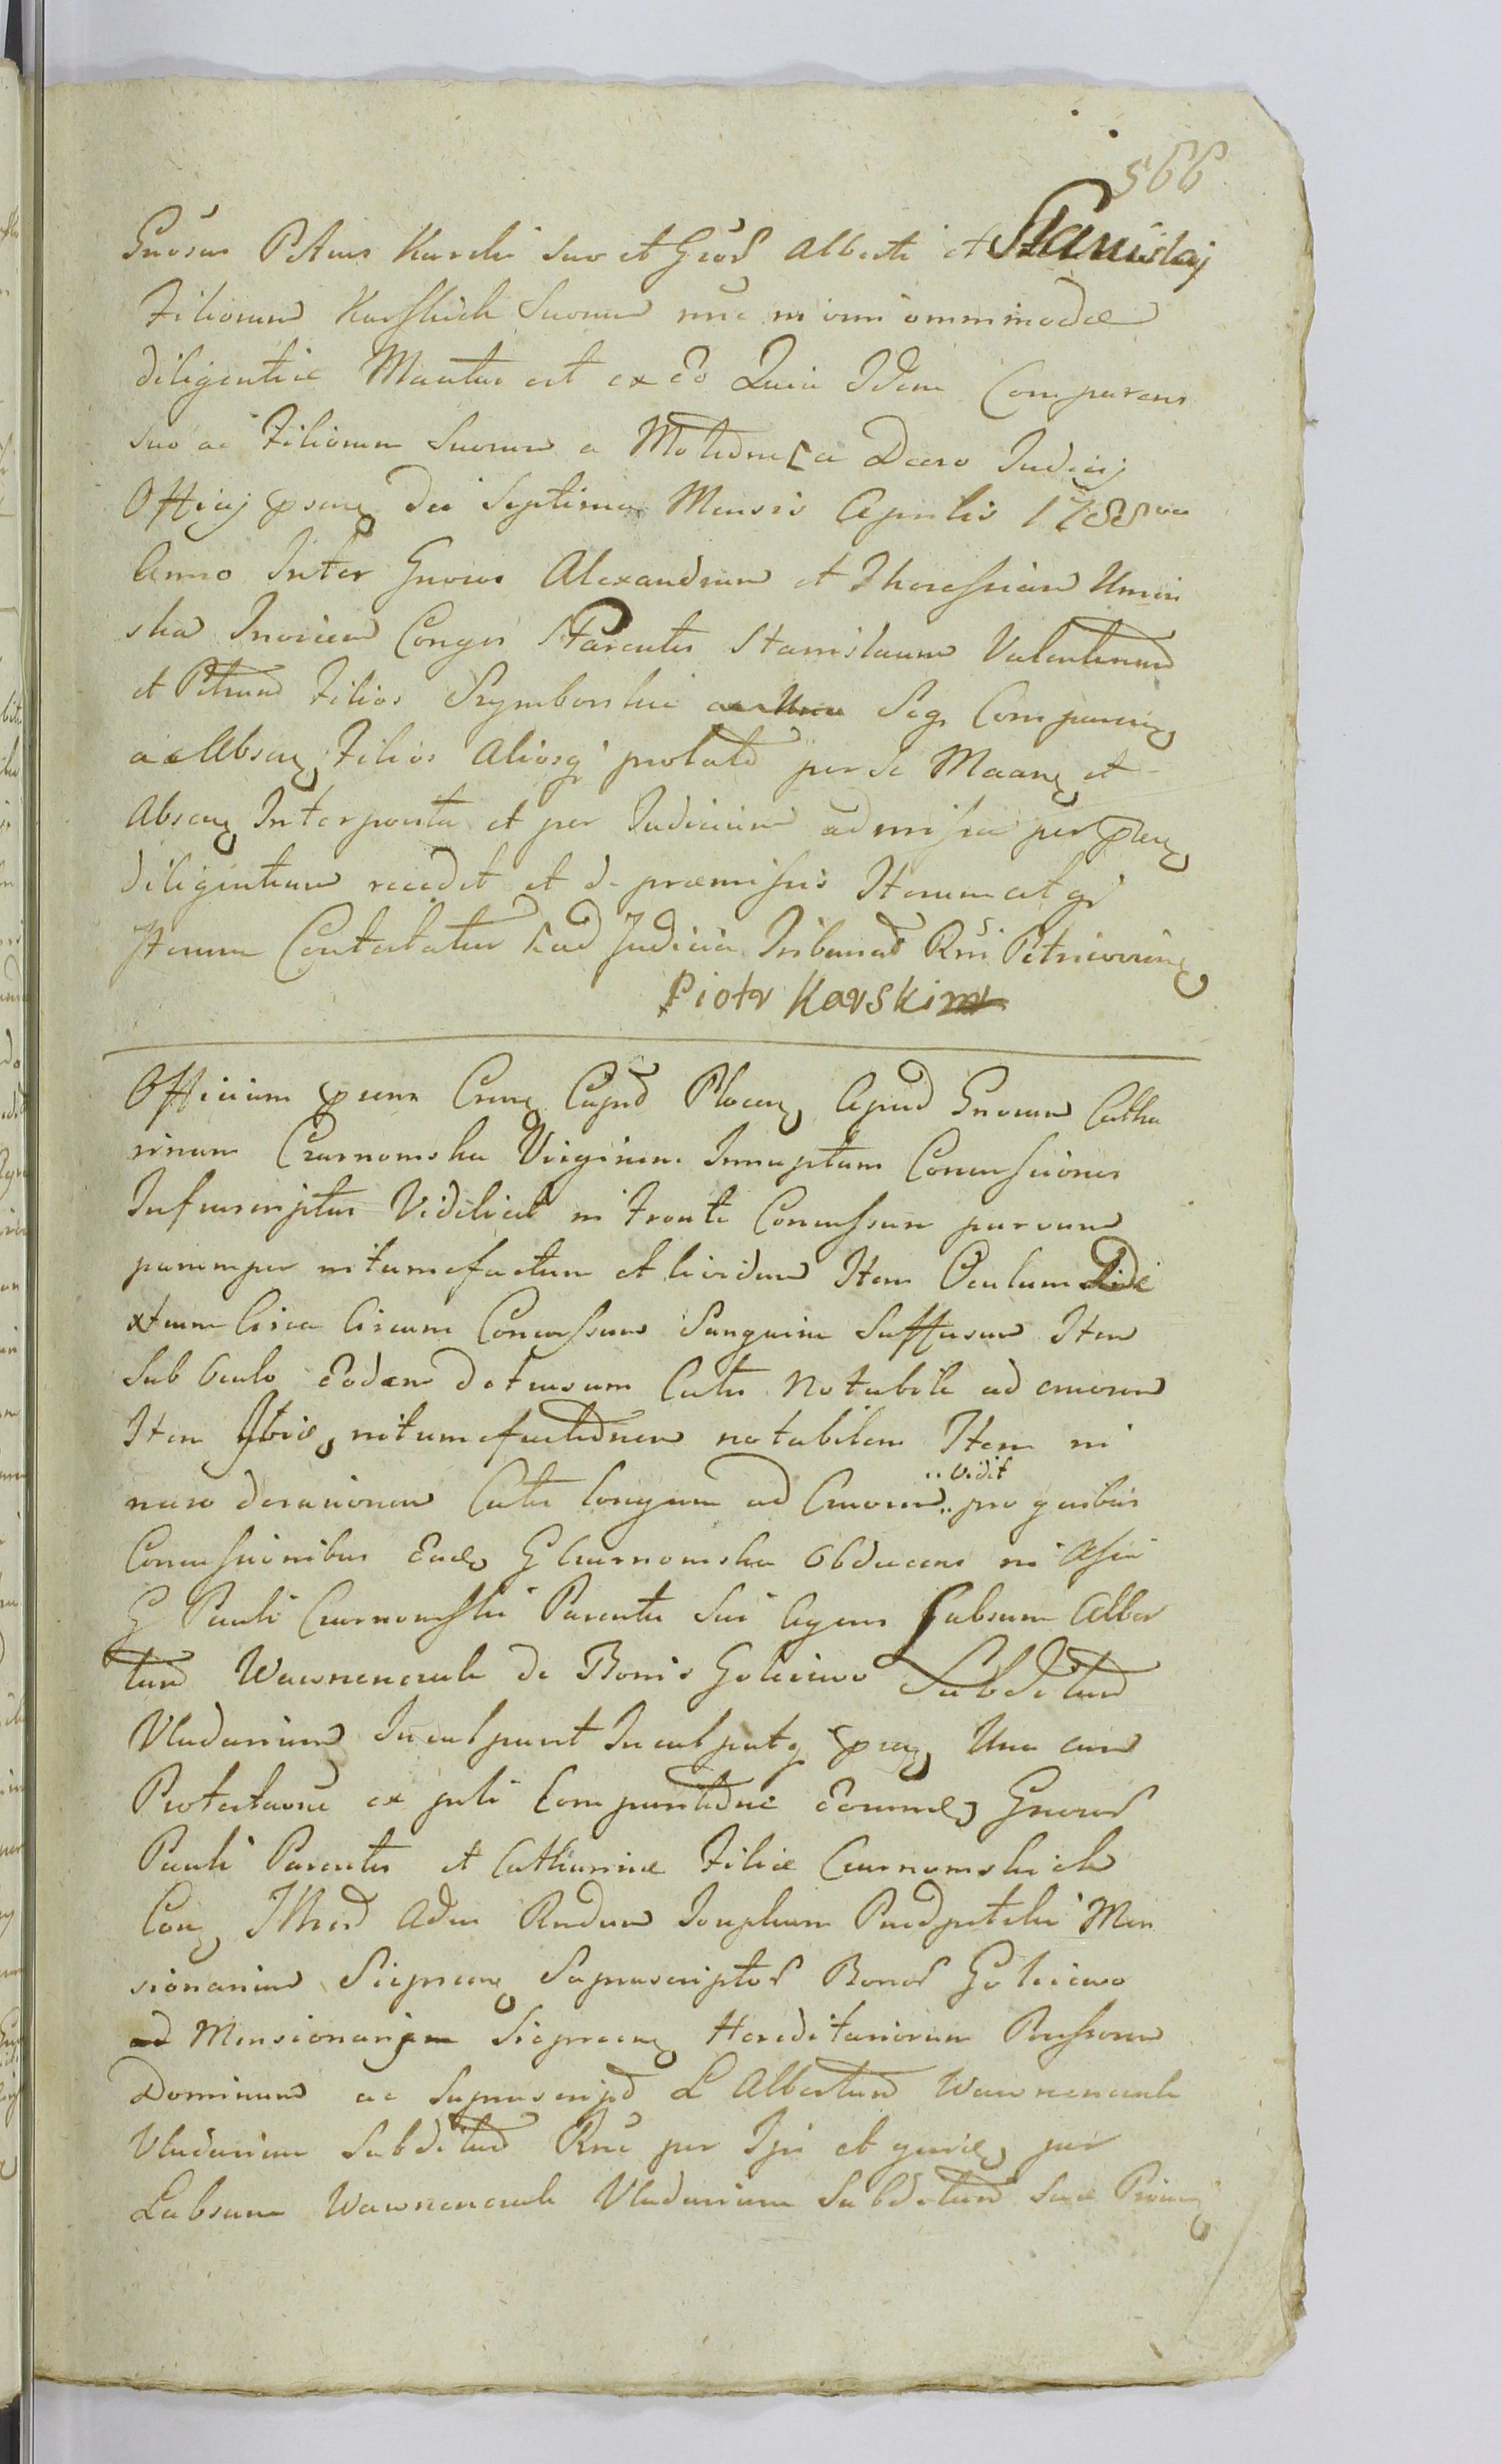 566
Gnosus Petrus Karski suo et Gnos Alberti et Stanislaj
Filiorum Karskich Suorum nne in omni ommimodae
diligentiae Mantus est ex eo Quia Idem Comparens
suo ac Filiorum Suorum a Decro Judicij
Officij psenq die Septima Mensis Aprilis 1788vo
Anno Inter Gnosos Alexandrum et Theressiam Umin
ska Invicem Conges Parentes Stanislaum Valentinum
et Petrum Filios Szymborskie Seq Comparenq
ac Absenq Filios Aliosq prolato per se Maanq et
Absenq Interposita et per Judicium admissa per psenq
diligentiam recedit et de praemissis Iterum atq
Iterum Contestatur ad Judicia Tribunal Rni Petricovienq
Piotr Karski
Officium psens Crense Capnd Plocenq Apud Gnosam Catha
rinam Czarnomska Virginem Innuptam Concussiones
Infrascriptas Videlicet in fronte Concussum parvum
parumper intumefactum et lividum Item Oculum Dide
xtrum Circa Circum Concussum Sanguine Suffusum Item
Sub Oculo Eodem detrusum Cutis notabile ad cruorem
Item Ibidq intumefactionem notabilem Item in
..vidit
naso derasionem Cutis longam ad Cruorem.. pro quibus
Concussionibus Eadq G Czarnomska Obducens in Assia
G Pauli Czarnomski Parentis sui Agens Labsum Alber
tum Wawrzenczak de Bonis Goleiewo Subditum
Vladarium Inculpavit Inculpatq psenq Una cum
Protestaone ex psli Comparitione Eorundq Gnosor
Pauli Parentis et Catharinae Filiae Czarnomskich
Conq Illud Adm Rndum Josephum Man
sionarium Sieprcenq Suprascriptor Bonor Goleiewo
ad Mensionarjum Sieprcenq Hereditariorum Possessorem
Dominum ac Suprascripd L Albertum Wawrzenczak
Vladarium Subditum Rne per Ipi et quidq per
Labsum Wawrzenczak Vladarium Subditum suae